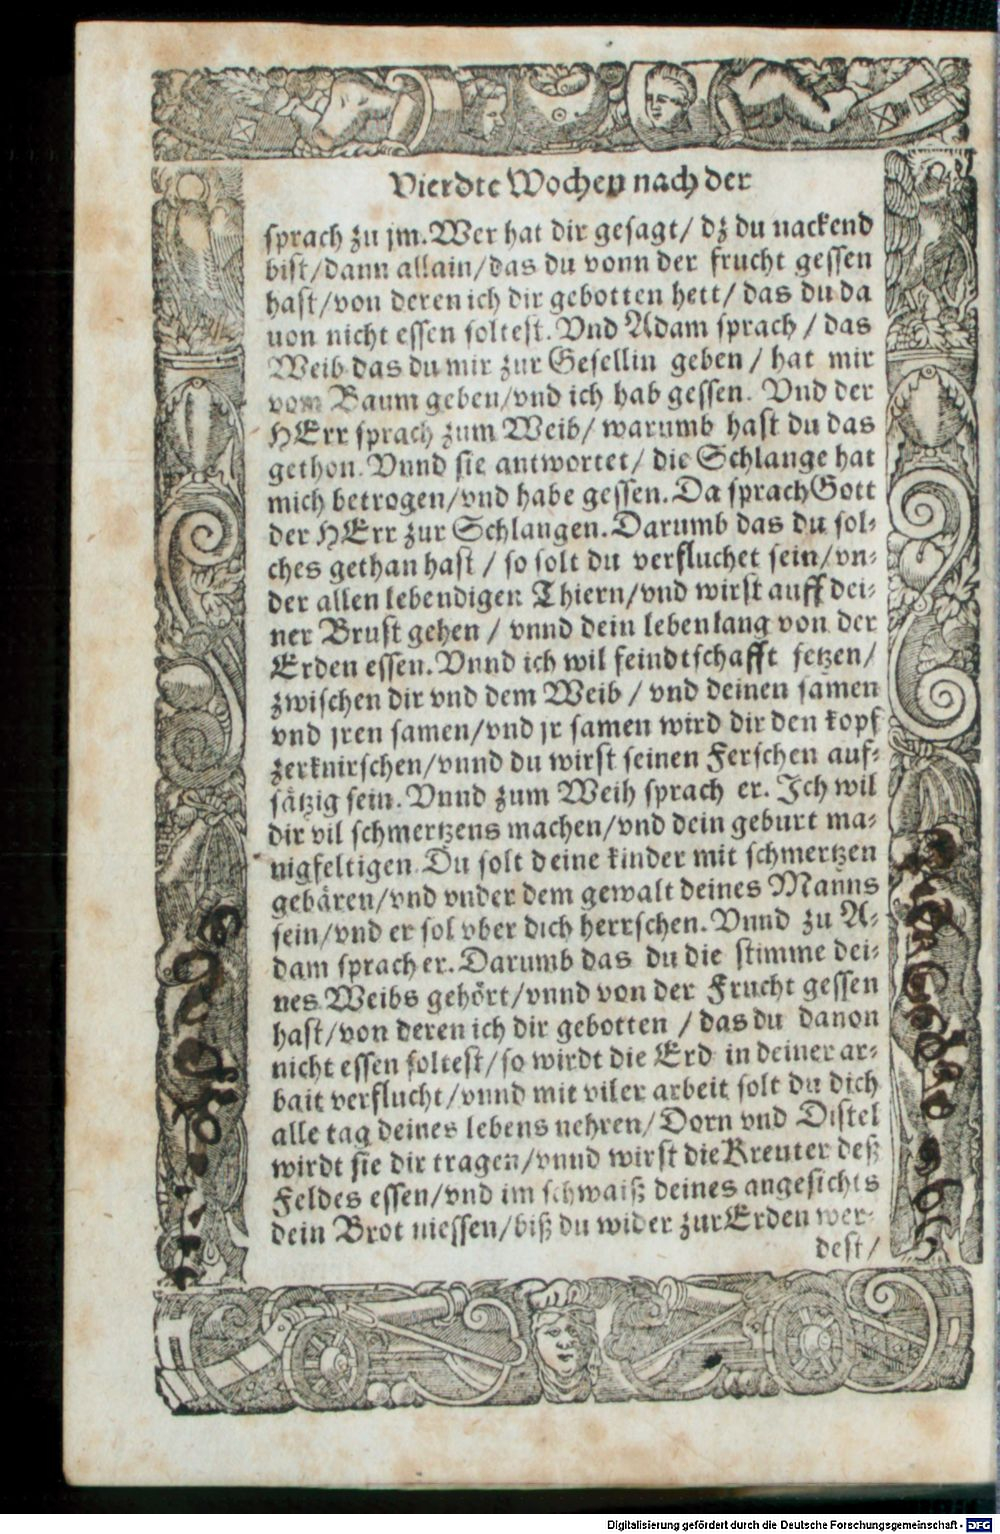 Vierdte Wochen nach der
sprach zu jm. Wer hat dir gesagt/ dz du nackend
bist/dann allain/das du vonn der frucht gessen
hast/von deren ich dir gebotten hett/ das du da
uon nicht essen soltest. Vnd Adam sprach / das
Weib das du mir zur Gesellin geben / hat mir
vom Baum geben/vnd ich hab gessen. Vnd der
HErr sprach zum Weib/ warumb hast du das
gethon. Vnnd sie antwortet/ die Schlange hat
mich betrogen/vnd habe gessen. Da sprach Gott
der HErr zur Schlangen. Darumb das du sol-
ches gethan hast / so solt du verfluchet sein/vn-
der allen lebendigen Thiern/vnd wirst auff dei-
ner Brust gehen / vnnd dein lebenlang von der
Erden essen. Vnnd ich wil feindtschafft setzen/
zwischen dir vnd dem Weib / vnd deinen samen
vnd jren samen/vnd jr samen wird dir den kopf
zerknirschen/vnnd du wirst seinen Ferschen auf-
sätzig sein. Vnnd zum Weih sprach er. Ich wil
dir vil schmertzens machen/vnd dein geburt ma-
nigfeltigen. Du solt deine kinder mit schmertzen
gebären/vnd vnder dem gewalt deines Manns
sein/vnd er sol vber dich herrschen. Vnnd zu A-
dam sprach er. Darumb das du die stimme dei-
nes Weibs gehört/vnnd von der Frucht gessen
hast/von deren ich dir gebotten / das du danon
nicht essen soltest/so wirdt die Erd in deiner ar-
bait verflucht/vnnd mit viler arbeit solt du dich
alle tag deines lebens nehren/Dorn vnd Distel
wirdt sie dir tragen/vnnd wirst die Kreuter deß
Feldes essen/vnd im schwaiß deines angesichts
dein Brot niessen/biß du wider zur Erden wer-
dest/
Digitalisierung gefördert durch die Deutsche Forschungsgemeinschaft - DFG